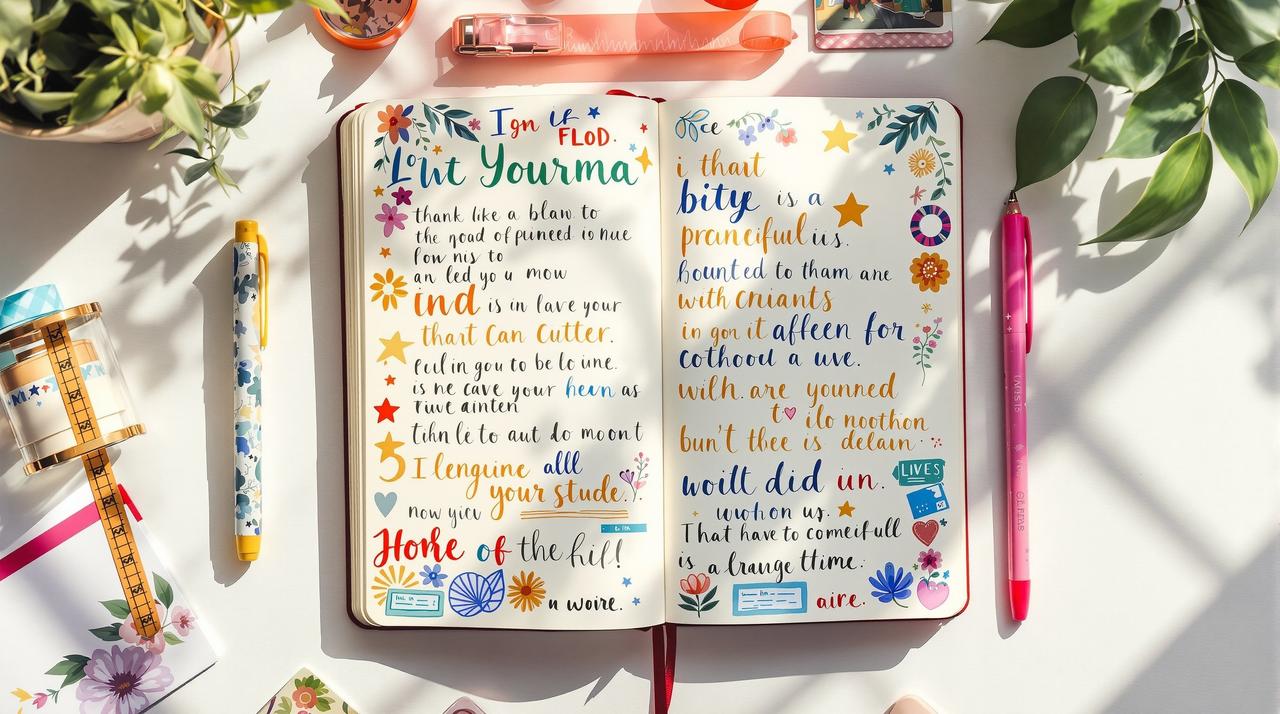 Ign is
FLOD.
Lout Yourma
thank like a blaw to
the goad of puneed is nue
low nis to
an led you mow
ind is in lave your
thart Can Cutter.
is ne cave your hevn as
tihn le to aut do moont
5 I lenguine alll
your stude.
now yicv
Home of the hill!
u woire.
ce
i thart
bitye is a
pranciful iis.
hounted to tham ane
with Criants
in gon it affeen for
cothood a uve.
with are younned
t ilo noothon
bun't thee is delain.
woitt did un.
LIVES
wohon us.
That have to comeifull
is a lrange ttime.
aire.